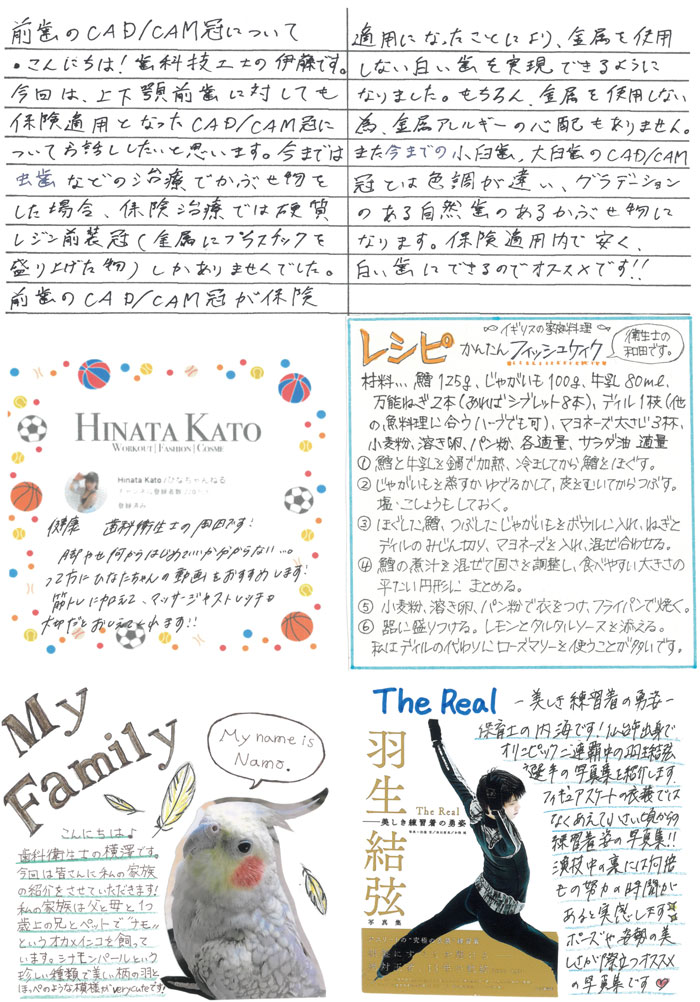 前歯のCAD/CAM冠について
・こんにちは!歯科技工士の伊藤です。
今回は、上下顎前歯に対しても
保険適用となったCAD/CAM冠に
ついてお話ししたいと思います。今までは
虫歯などの治療でかぶせ物を
した場合、保険治療では硬質
レジン前装冠(金属にプラスチックを
盛り上げた物)しかありませんでした。
前歯のCAD/CAM冠が保険
適用になったことにより、金属を使用
しない白い歯を実現できるように
なりました。もちろん、金属を使用しない
為、金属アレルギーの心配もありません。
また今までの小臼歯、大臼歯のCAD/CAM
冠とは色調が違い、グラデーション
のある自然歯のあるかぶせ物に
なります。保険適用内で安く、
白い歯にできるのでオススメです!!
HINATA KATO
WORKOUT | FASHION | COSME
Hinata Kato /ひなちゃんねる
登録済み
健康 歯科衛生士の岡田です!
脚やせ何からはじめていいか分からない…。
って方にひなたちゃんの動画をおすすめします!
筋トレに加えて、マッサージやストレッチも
大切だとおしえてくれます!!
イギリスの家庭料理
レシピ かんたんフィッシュケイク
衛生士の
和田です。
材料… 鱈125g、じゃがいも100g、牛乳80ml、
万能ねぎ2本(あればシブレット8本)、ディル1枝(他
の魚料理に合うハーブでも可)、マヨネーズ大さじ3杯、
小麦粉、溶き卵、パン粉、各適量、サラダ油 適量
① 鱈と牛乳を鍋で加熱、冷ましてから鱈をほぐす。
② じゃがいもを蒸すかゆでるかして、皮をむいてからつぶす。
塩・こしょうもしておく。
③ ほぐした鱈、つぶしたじゃがいもをボウルに入れ、ねぎと
ディルのみじん切り、マヨネーズを入れ、混ぜ合わせる。
④ 鱈の煮汁を混ぜて固さを調整し、食べやすい大きさの
平たい円形にまとめる。
⑤ 小麦粉、溶き卵、パン粉で衣をつけ、フライパンで焼く。
⑥ 器に盛りつける。レモンとタルタルソースを添える。
私はディルの代わりにローズマリーを使うことが多いです。
My Family
My name is
Namo.
こんにちは♪
歯科衛生士の横澤です。
今回は皆さんに私の家族
の紹介をさせていただきます!
私の家族は父と母と1つ
歳上の兄とペットで“ナモ”
というオカメインコを飼って
います。シナモンパールという
珍しい種類で美しい柄の羽と
ほっぺのような模様がvery cuteです!
The Real -美しき練習着の勇姿-
保育士の内海です!仙台市出身で
オリンピック二連覇中の羽生結弦
選手の写真集を紹介します。
フィギュアスケートの衣装では
なくあえて小さい頃からの
練習着姿の写真集!!
演技中の裏には何倍
もの努力の時間が
あると実感します
ポーズや姿勢の美
しさが際立つオススメ
の写真集です♥
羽生結弦
The Real
美しき練習着の勇姿
写真集